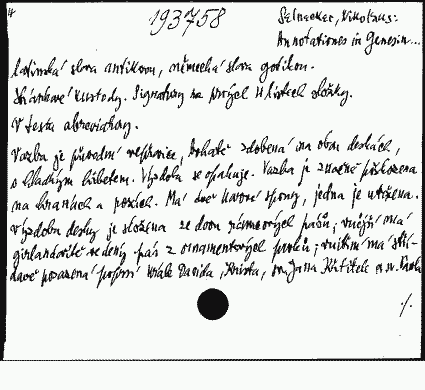 4
193758
Selnecker, Nikolaus:
Annotationes in Genesin...
Latinská slova antikvou, německá slova gotikou.
Stránkové kustody. Signatury na prvých listech složky.
V textu abreviatury.
Vazba je původní vepřovice, bohatě zdobená na obou deskách,
s hladkým hřbetem. Výzdoba se opakuje. Vazba je značně poškozena
na hranách a rozích. Má dvě kovové spony, jedna je utržena.
Výzdoba desky je složena ze dvou rámcových pásů; vnější má
girlandovitě vedený pás z ornamentových prvků; vnitřní má stří-
davě posazená poprsí krále Davida, Krista, sv. Jana Křtitele a sv. Pavla
./.